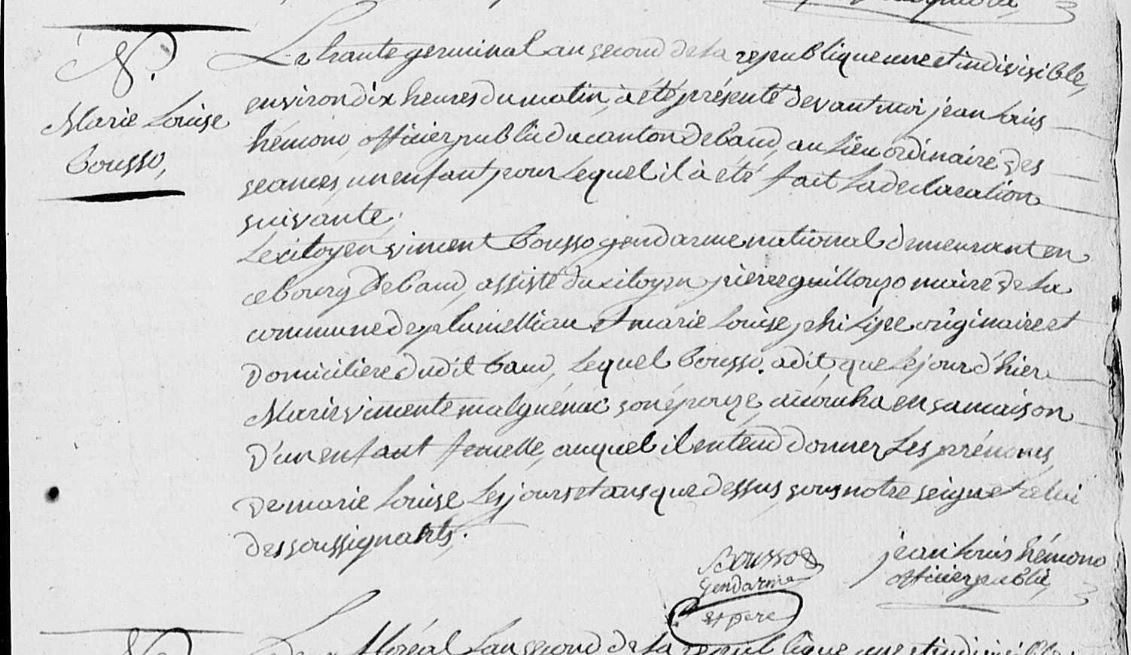 N.
Marie Louise
Bousso,
Le trante germinal an second de la republique une et indivisible,
environ dix heures du matin, à été présenté devant moi jean louis
hémono, officier public du canton de baud, au lieu ordinaire des
seances, un enfant pour lequel il à été fait la declaration
suivante,
Le citoyen vincent Bousso gendarme national demeurant en
ce bourg de baud, assisté du citoyen pierre guillouzo maire de la
commune de plumelliau et marie Louise philipe originaire et
Domiciliere dudit baud, lequel Bousso, a dit que le jour d'hier
Marie vincente malguénac son épouze, accoucha en sa maison
D'un enfant femelle, auquel il entend donner les prénoms,
De marie Louise Les jours et ans que dessus, sous notre seign et celui
des soussignants.
Bousso
Gendarme
et pere
jean louis hémono
officier public
L'an second de la republique une et indivisible